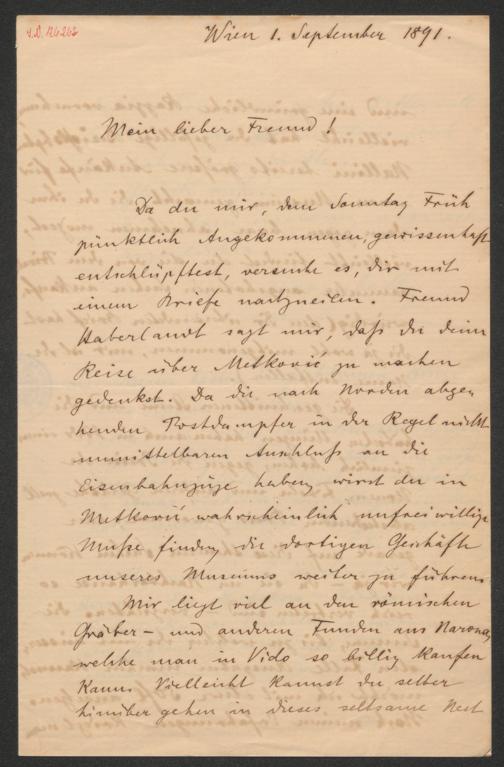 A.N. 126262
Wien 1. September 1891.
Mein lieber Freund!
Da du mir, dem Sonntag Früh
pünktlich Angekommenen, gewissenhaft
entschlüpftest, versuche es, dir mit
einem Briefe nachzueilen. Freund
Haberlandt sagt mir, daß du deine
Reise über Metković zu machen
gedenkst. Da die nach Norden abge-
henden Postdampfer in der Regel nicht
unmittelbaren Anschluß an die
Eisenbahnzüge haben, wirst du in
Metković wahrscheinlich unfreiwillige
Muße finden, die dortigen Geschäfte
unseres Museums weiter zu führen.
Mir liegt viel an den römischen
Gräber- und anderen Funden aus Narona,
welche man in Vido so billig kaufen
kann. Vielleicht kannst du selber
hinüber gehen in dieses seltsame Nest